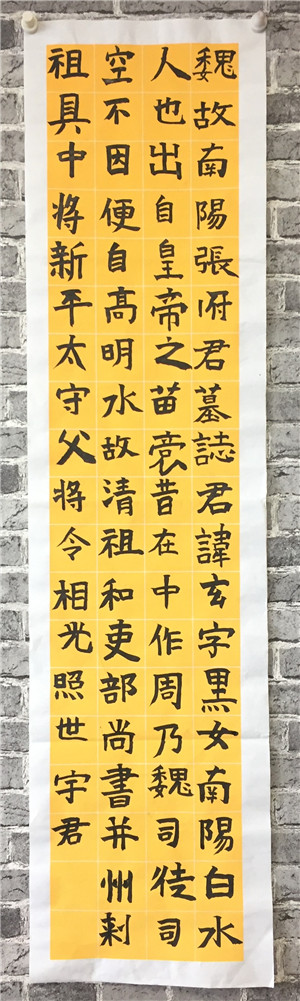 魏故南陽張府君墓誌君諱玄字黒女南陽白水
人也出自皇帝之苗裔昔在中作周乃魏司徒司
空不因便自高明水故清祖和吏部尚書并州刺
祖具中将新平太守父将令相光照世字君